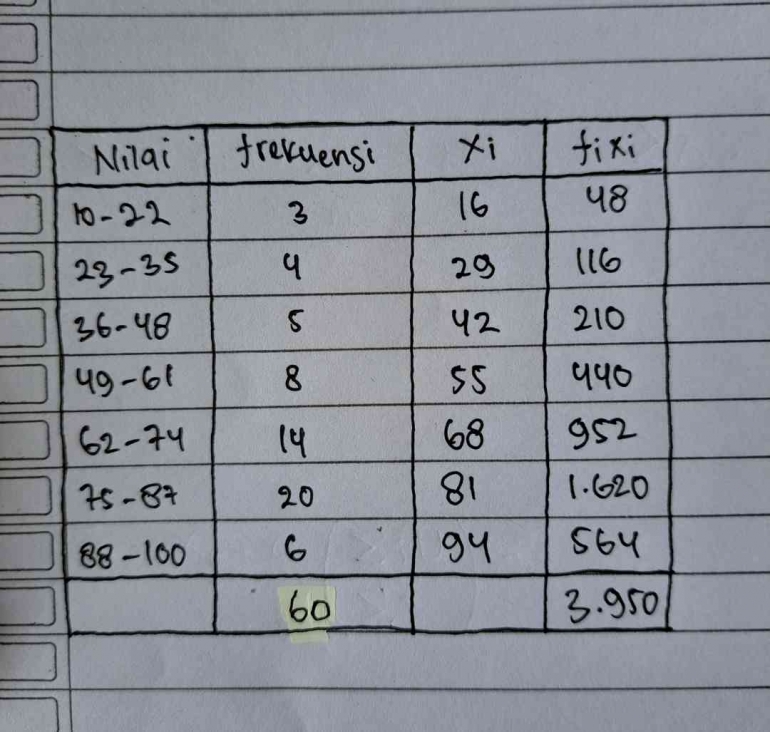 Nilai frekuensi xi fixi
10-22 3 16 48
23-35 4 29 116
36-48 5 42 210
49-61 8 55 440
62-74 14 68 952
75-87 20 81 1.620
88-100 6 94 564
60 3.950